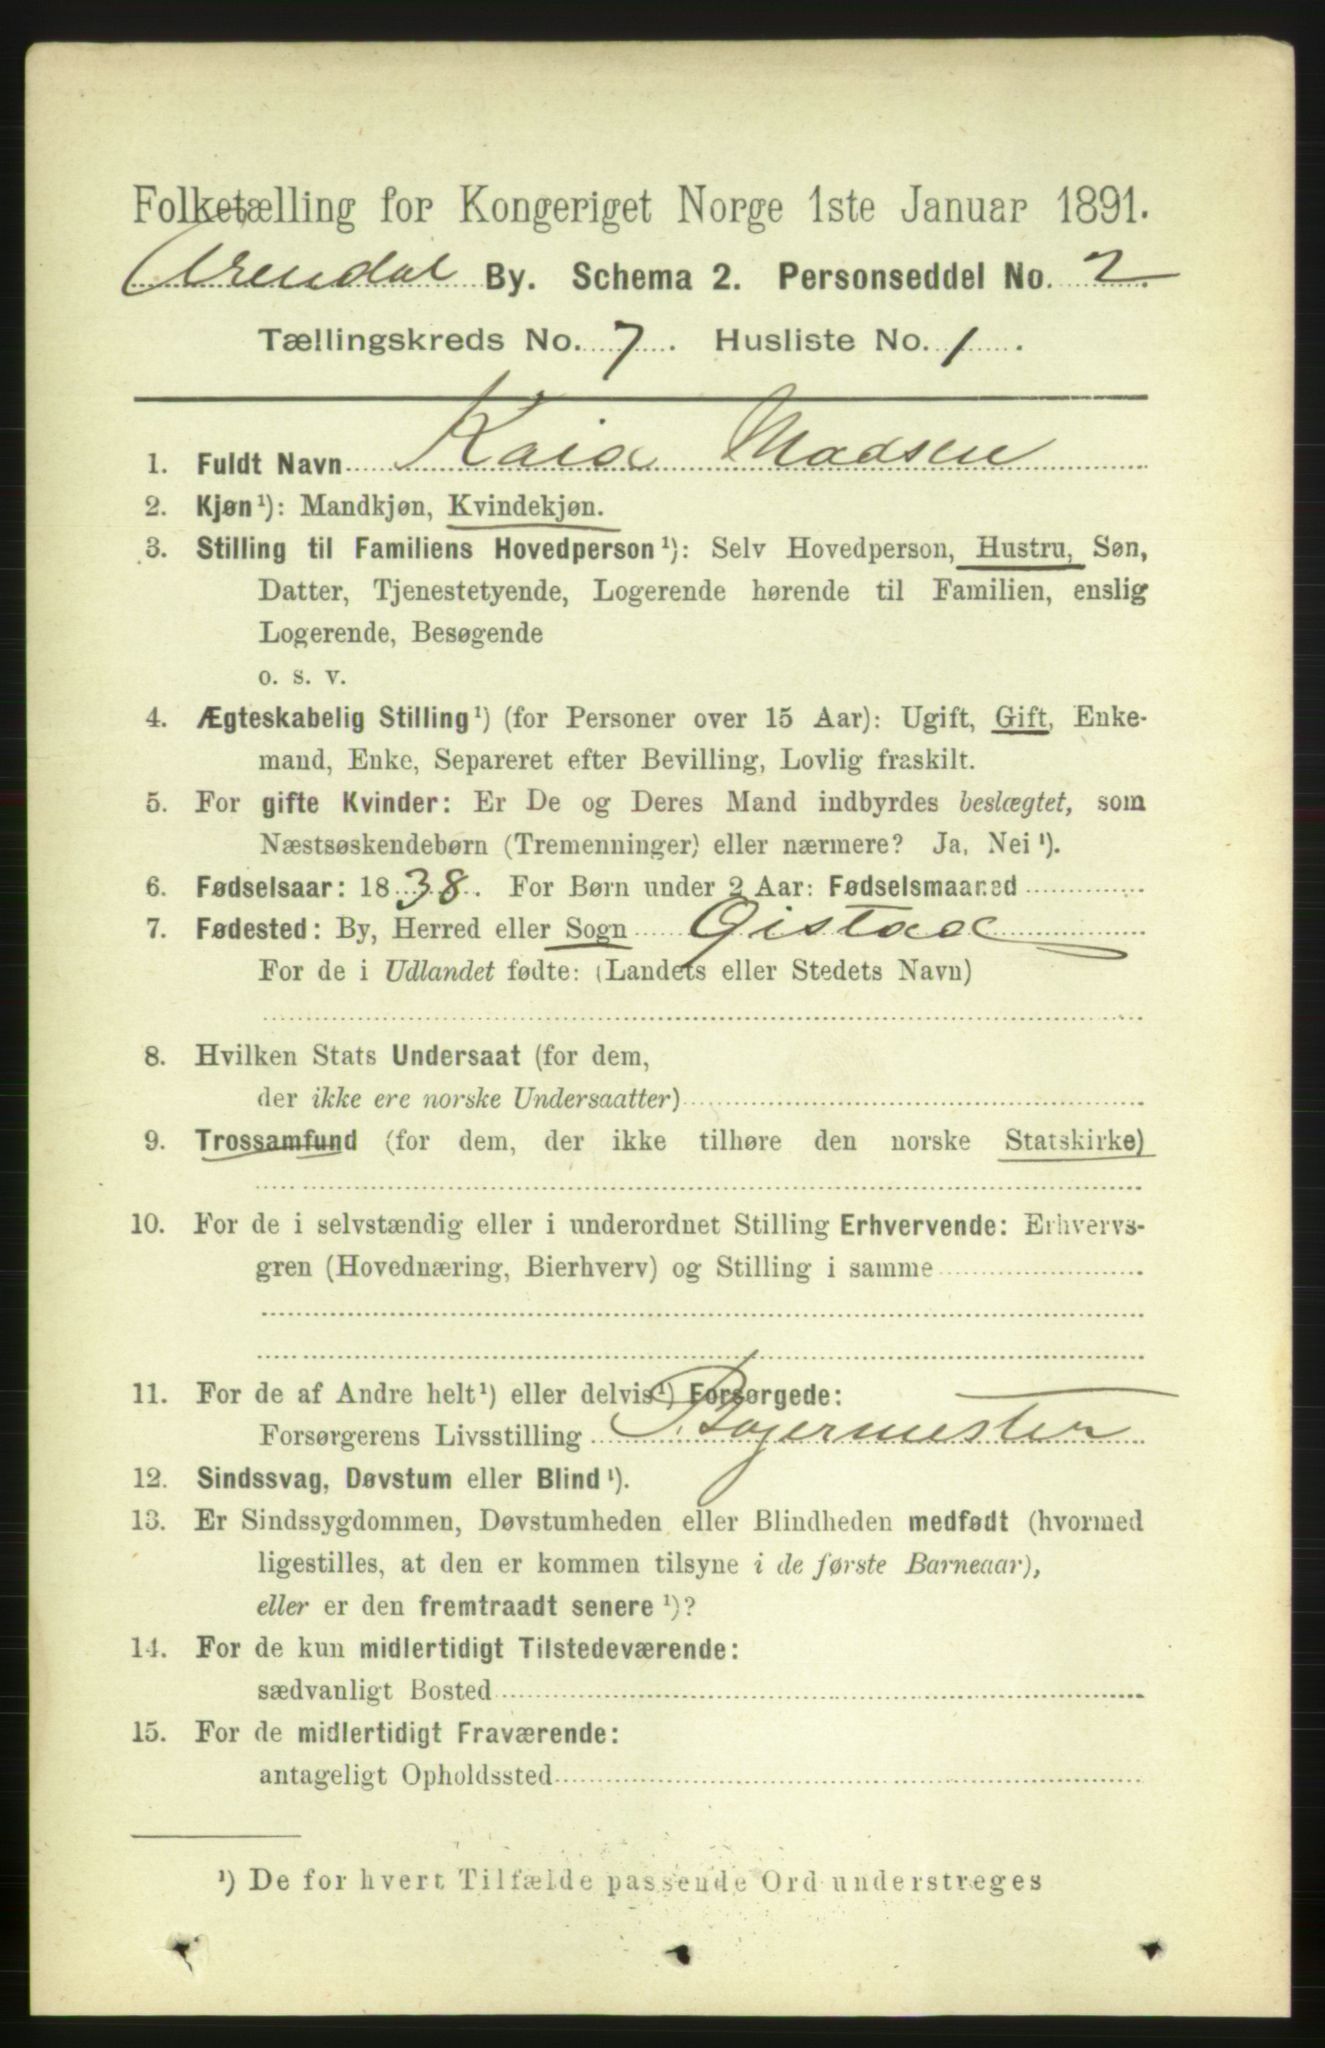 Folketælling for Kongeriget Norge 1ste Januar 1891.
Arendal By. Schema 2. Personseddel No. 2.
Tællingskreds No. 7. Husliste No. 1.
1. Fuldt Navn Kaia Madsen
2. Kjøn ¹): Mandkjøn, Kvindekjøn.
3. Stilling til Familiens Hovedperson ¹): Selv Hovedperson, Hustru, Søn,
Datter, Tjenestetyende, Logerende hørende til Familien, enslig
Logerende, Besøgende
o. s. v.
4. Ægteskabelig Stilling ¹) (for Personer over 15 Aar): Ugift, Gift, Enke-
mand, Enke, Separeret efter Bevilling, Lovlig fraskilt.
5. For gifte Kvinder: Er De og Deres Mand indbyrdes beslægtet, som
Næstsøskendebørn (Tremenninger) eller nærmere? Ja, Nei ¹).
6. Fødselsaar: 1838. For Børn under 2 Aar: Fødselsmaaned
7. Fødested: By, Herred eller Sogn Øistad
For de i Udlandet fødte: (Landets eller Stedets Navn)
8. Hvilken Stats Undersaat (for dem,
der ikke ere norske Undersaatter)
9. Trossamfund (for dem, der ikke tilhøre den norske Statskirke)
10. For de i selvstændig eller i underordnet Stilling Erhvervende: Erhvervs-
gren (Hovednæring, Bierhverv) og Stilling i samme
11. For de af Andre helt ¹) eller delvis ¹) Forsørgede:
Forsørgerens Livsstilling Bøjermester
12. Sindssvag, Døvstum eller Blind ¹).
13. Er Sindssygdommen, Døvstumheden eller Blindheden medfødt (hvormed
ligestilles, at den er kommen tilsyne i de første Barneaar),
eller er den fremtraadt senere ¹)?
14. For de kun midlertidigt Tilstedeværende:
sædvanligt Bosted
15. For de midlertidigt Fraværende:
antageligt Opholdssted
¹) De for hvert Tilfælde passende Ord understreges